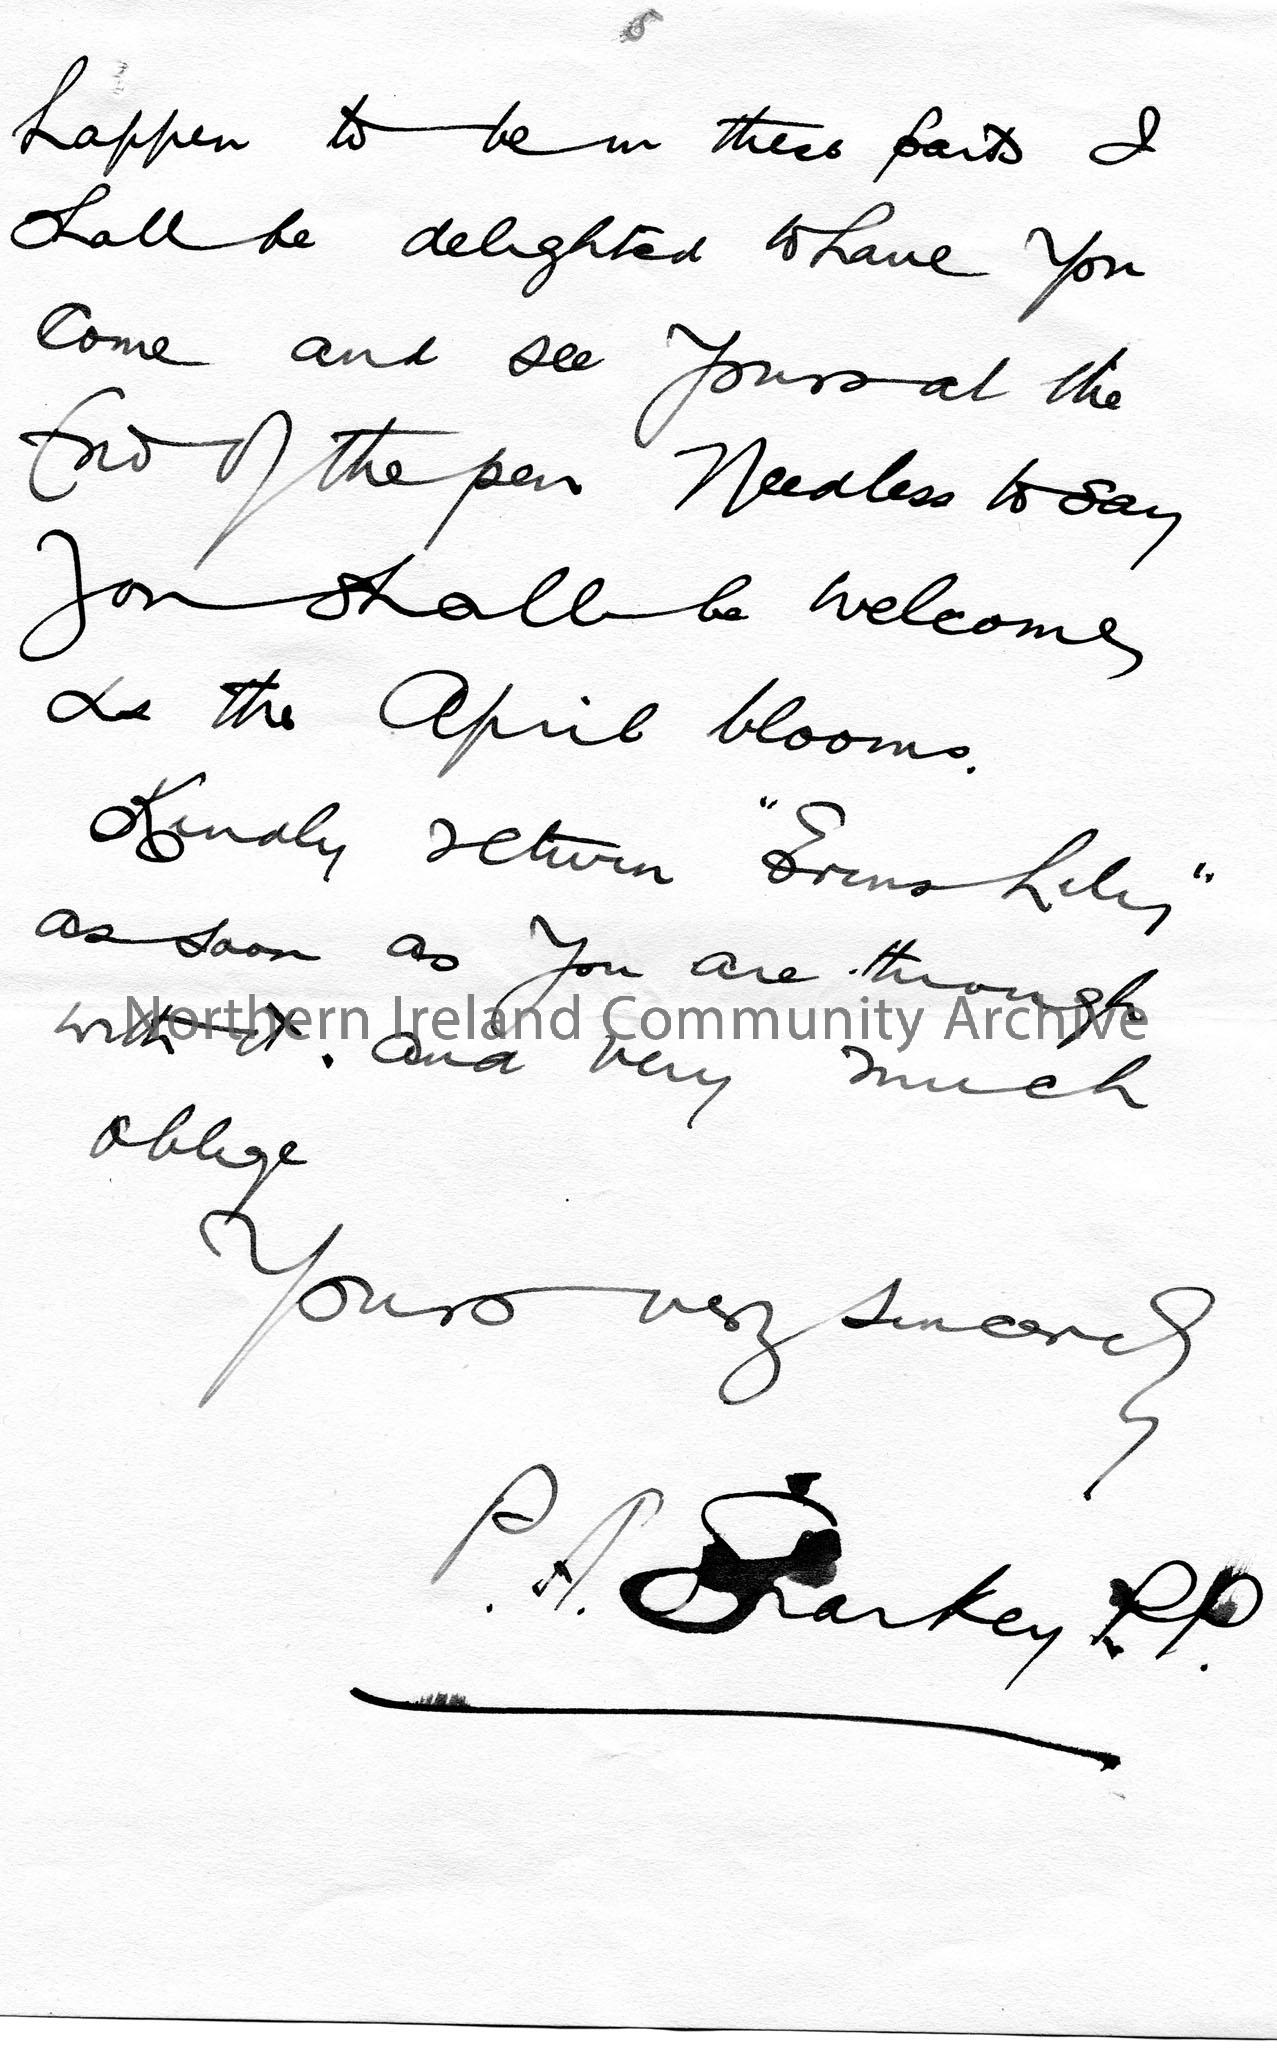 happen to be in these parts I
shall be delighted to have you
come and see yours at the
End of the pen Needless to say
you shall be welcome
as the April blooms.
Kindly return "Erins Lily"
as soon as you are through
with it. and very much
Northern Ireland Community Archive
oblige
Yours very sincerely
P. A. Sharkey P.P.